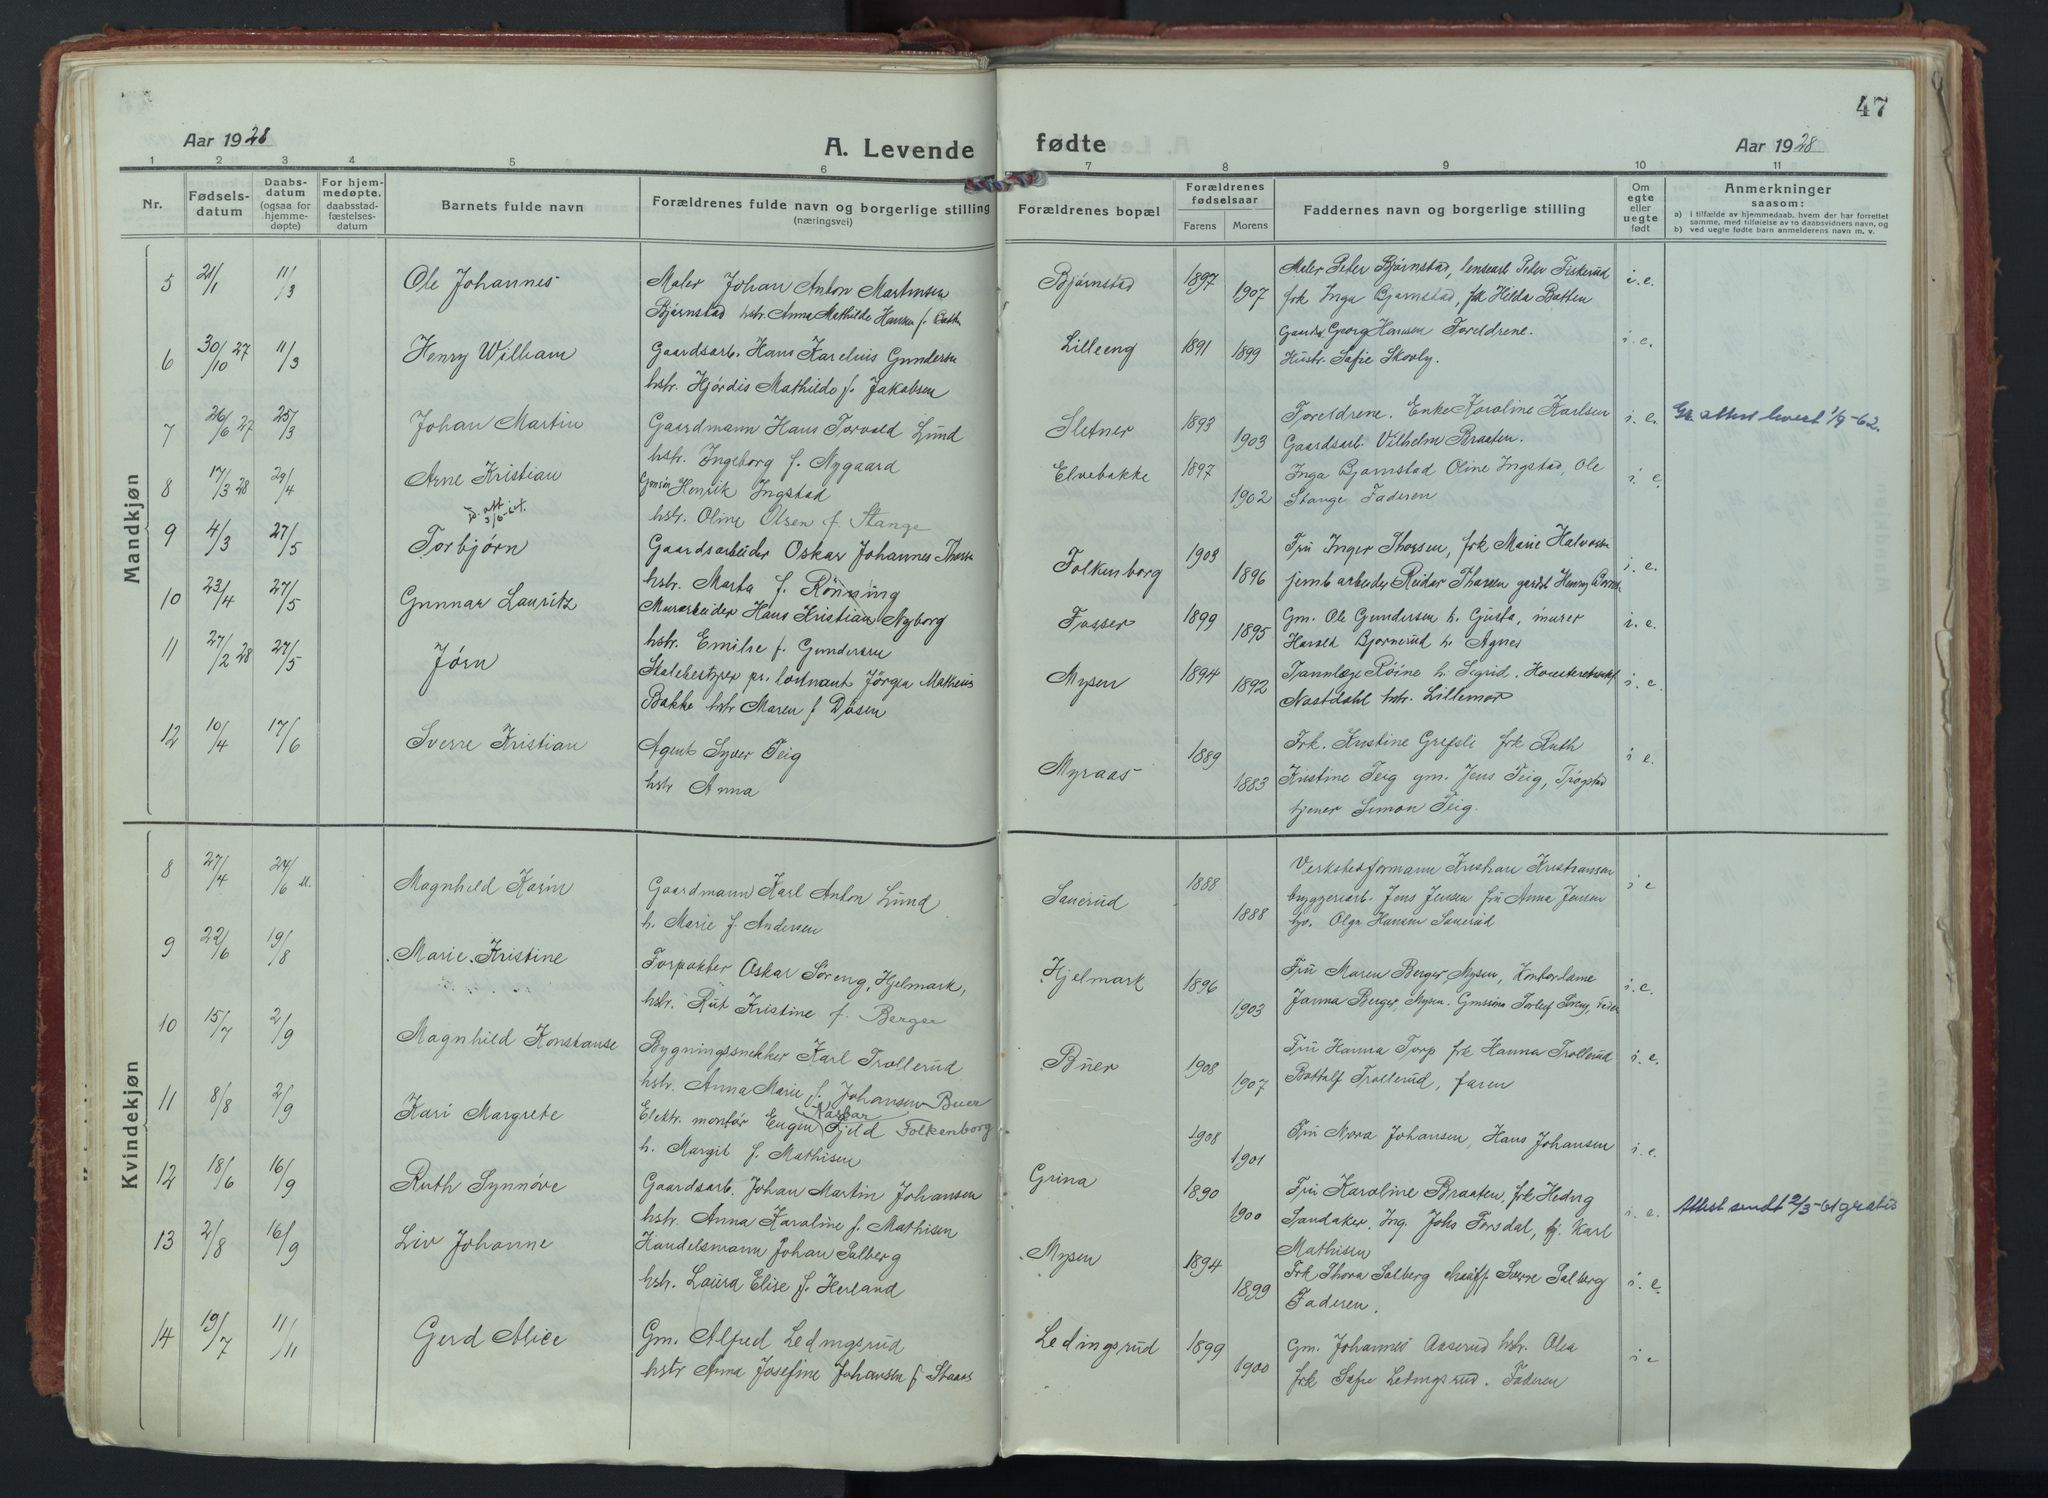 47
Aar 1928
A. Levende fødte
Aar 1928
1 2 3 4 5 6 7 8 9 10 11
Nr.
Fødsels-
datum
Daabs-
datum
(ogsaa for
hjemme-
døpte)
For hjem-
medøpte.
daabsstad-
fæstelses-
datum
Barnets fulde navn
Forældrenes fulde navn og borgerlige stilling
(næringsvei)
Forældrenes bopæl
Forældrenes
fødselsaar
Farens Morens
Faddernes navn og borgerlige stilling
Om
egte
eller
uegte
født
Anmerkninger
saasom:
a) i tilfælde av hjemmedaab, hvem der har forrettet
samme, med tilføielse av to daabsvidners navn, og
b) ved uegte fødte barn anmelderens navn m. v.
Mandkjøn
5 21/1 11/3 Ole Johannes
Maler Johan Anton Martinsen
Bjørnstad hstr. Anna Mathilde Hansen f.
Bjørnstad 1897 1907
Maler Peter Bjørnstad, Peter Fiskerud
frk Inga Bjørnstad, frk Hilda Batten
i. e.
6 30/10 27 11/3 Henry William
Gaardsarb. Hans Karelius Gundersen
hstr. Hjördis Mathilde f. Jakobsen
Lilleeng 1891 1899
Georg Hansen Foreldrene.
Hustr. Sofie Skovly.
i. e.
7 26/6 27 25/3 Johan Martin
Gaardmann Hans Torvald Lund
hstr. Ingeborg f. Nygaard
Sletner 1893 1903
Foreldrene. Enke Karoline Karlsen
Gaardsarb. Vilhelm Braaten.
i. e.
attest levert 1/9-62.
8 17/3 28 29/4 Arne Kristian
Gmsön Henrik Ingstad
hstr. Oline Olsen f. Stange
Elvebakke 1897 1902
Inga Bjørnstad Oline Ingstad, Ole
Stange Faderen
i. e.
9 4/3 27/5 Torbjørn
att 3/6-64.
Gaardsarbeider Oskar Johannes
hstr. Marta f. Rönning
Folkenborg 1903 1896
Fru Inger Thorsen, frk Marie
jernbarbeider Reidar Thorsen Henry
i. e.
10 23/4 27/5 Gunnar Lauritz
Murarbeider Hans Kristian Nyborg
hstr. Emilie f. Gundersen
Fosser 1899 1895
Gm. Ole Gundersen h. Gusta, murer
Harald Bjørnerud h. Agnes
i. e.
11 27/2 28 27/5 Jörn
pr. löitnant Jörgen Matheus
Bakke hstr Maren f Düsen
Mysen 1894 1892
Tannlæge Röine h. Sigrid.
Nastdahl hstr. Lillemor
i. e.
12 10/4 17/6 Sverre Kristian
Agent Syver Teig
hstr Anna
Myraas 1889 1883
Frk. Kristine Grefsli frk Ruth
Kristine Teig gm. Jens Teig, Trøgstad
tjener Simon Teig.
i e.
Kvindekjøn
8 27/4 24/6 Magnhild Karin
Gaardmann Karl Anton Lund
h. Marie f. Andersen
Sauerud 1888 1888
Verkstedformann Kristian Kristiansen
byggeriarb. Jens Jensen fru Anna Jensen
Olga Hansen Sauerud
i e
9 22/6 19/8 Marie Kristine
Forpakter Oskar Söreng, Hjelmark,
hstr. Rut Kristine f. Berger
Hjelmark 1896 1903
Fru Maren Berger Mysen, Kontordame
Berger, Mysen.
i. e.
10 15/7 2/9 Magnhild Konstanse
Bygningssnekker Karl Trollerud
hstr. Anna Marie f. Johansen Buer
Buer 1908 1907
Fru Hanna Torp frk Hanna Trollerud
Bottolf Trollerud, faren
i. e.
11 8/8 2/9 Kari Margrete
Elektr. montör Eugen Fjeld Folkenborg
h. Margit f. Mathisen
1908 1901
Fru Nora Johansen, Hans Johansen
i. e.
12 18/6 16/9 Ruth Synnöve
Gaardsarb. Johan Martin Johansen
hstr. Anna Karoline f. Mathisen
Grina 1890 1900
Fru Karoline Braaten, frk Hedvig
Sandaker, Ing. Johs Forsdal, Karl
Mathisen
i. e.
Attest sendt 2/3-61 gratis
13 2/8 16/9 Liv Johanne
Handelsmann Johan Solberg
hstr. Laura Elise f. Herland
Mysen 1894 1899
Frk Thora Solberg Sverre Solberg
Faderen.
i. e.
14 19/7 11/11 Gerd Alice
Gm. Alfred Ledingsrud
hstr Anna Josefine Johansen f
Ledingsrud 1899 1900
Gm. Johannes Aaserud hstr. Olea
frk Sofie Ledingsrud. Faderen
i e